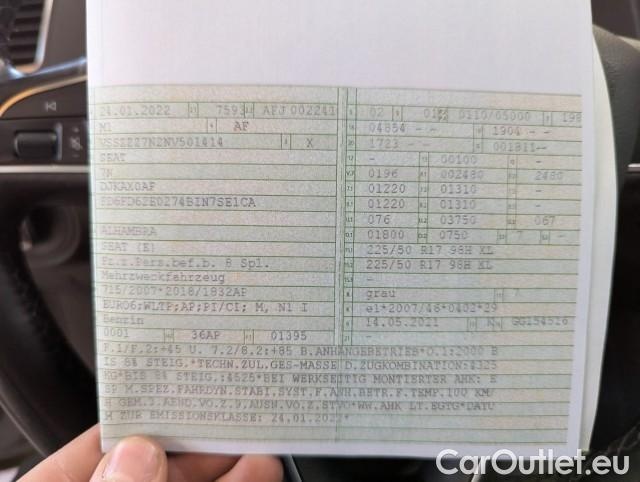 24.01.2022 7593 AFJ 002241
M1 AF
VSSZZZ7N2NV501414 X
SEAT
7N
DJKAX0AF
FD6FD62E0274BIN7SE1CA
ALHAMBRA
SEAT (E)
Fz.z.Pers.bef.b. 8 Spl.
Mehrzweckfahrzeug
715/2007*2018/1832AP
EURO6;WLTP;AP;PI/CI; M, N1 I
Benzin
0001 36AP 01395
02 0110/05000 198
04854 - - 1904 - -
1723 - - 001811-
- 00100 -
0196 002480 2480
01220 01310 -
01220 01310 -
076 03750 067
01800 0750 7 -
225/50 R17 98H XL
225/50 R17 98H XL
-
-
grau
e1*2007/46*0402*29
14.05.2021 N GG154526
F.1/F.2:+45 U. 7.2/8.2:+85 B.ANHÄNGEBETRIEB*O.1:2000 B
IS 8% STEIG.*TECHN.ZUL.GES-MASSE D.ZUGKOMBINATION:4325
KG*BIS 8% STEIG.:4525*BEI WERKSEITIG MONTIERTER AHK: E
SP M.SPEZ.FAHRDYN.STABI.SYST.F.ANH.BETR.F.TEMP.100 KM/
H GEM.3.AEND.VO.Z.9.AUSN.VO.Z.STVO*WW.AHK LT.EGTG*DATU
M ZUR EMISSIONSKLASSE: 24.01.2022*
CarOutlet.eu